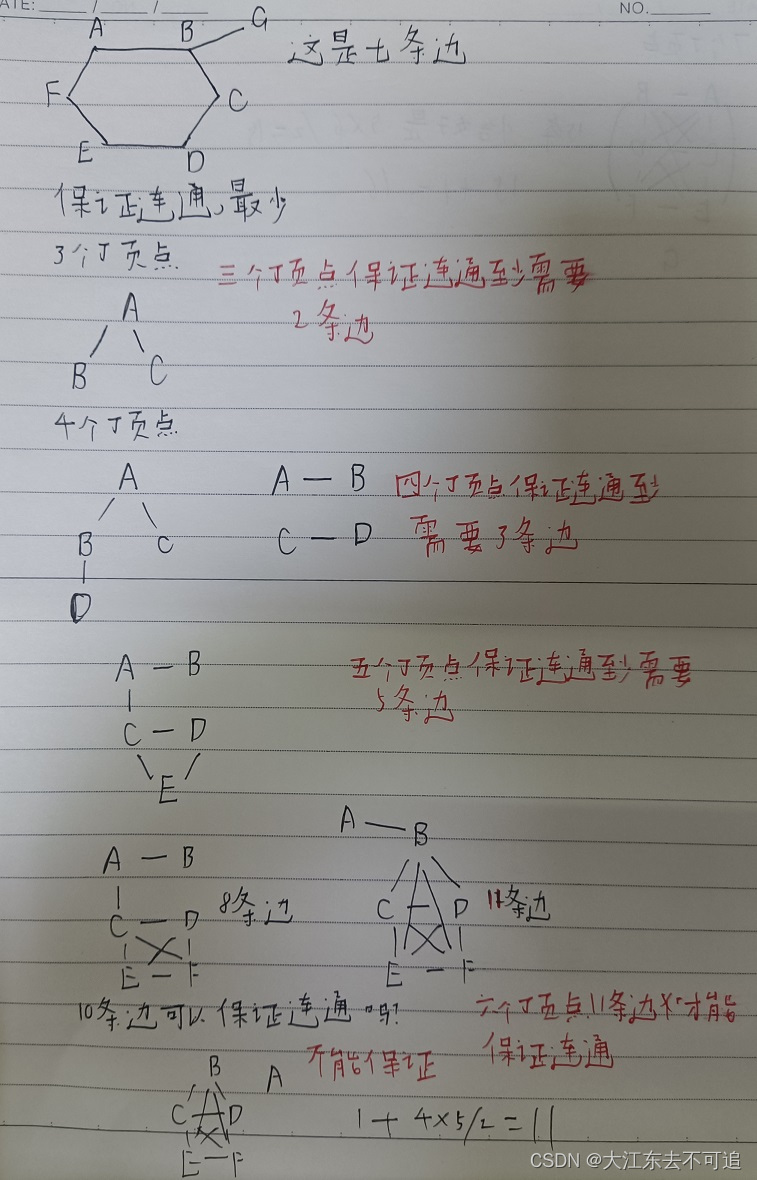 ATE: ___ / ___ / ___ NO. ___
A B G
这是七条边
F C
E D
保证连通,最少
3个顶点
三个顶点保证连通至少需要
2条边
A
B C
4个顶点
A A — B 四个顶点保证连通至少
B C C — D 需要3条边
D
A — B 五个顶点保证连通至少需要
5条边
C — D
E
A — B
A — B
C — D 8条边
C — D 11条边
E — F
E — F
10条边可以保证连通吗?
六个顶点11条边才能
保证连通
不能保证
B A
C D
E — F
1 + 4×5/2 = 11
CSDN @大江东去不可追